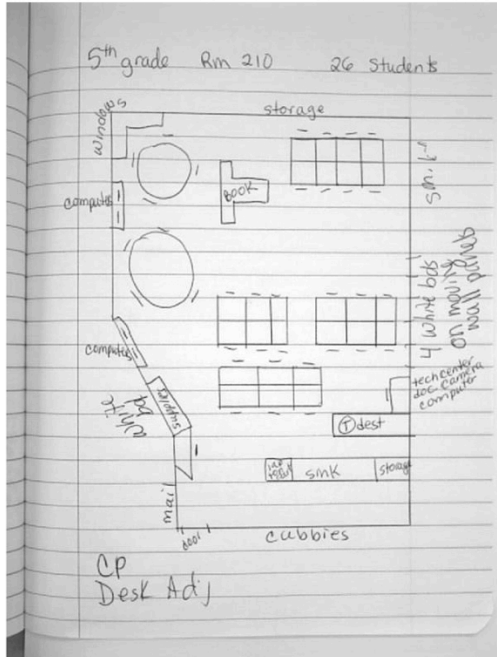 5th grade Rm 210 26 Students
windows
storage
computer
BOOK
4 white bds
on moving
wall panels
computer
tech center
doc. camera
computer
white
bd
supplies
T dest
sink
storage
mail
door
cubbies
CP
Desk Adj